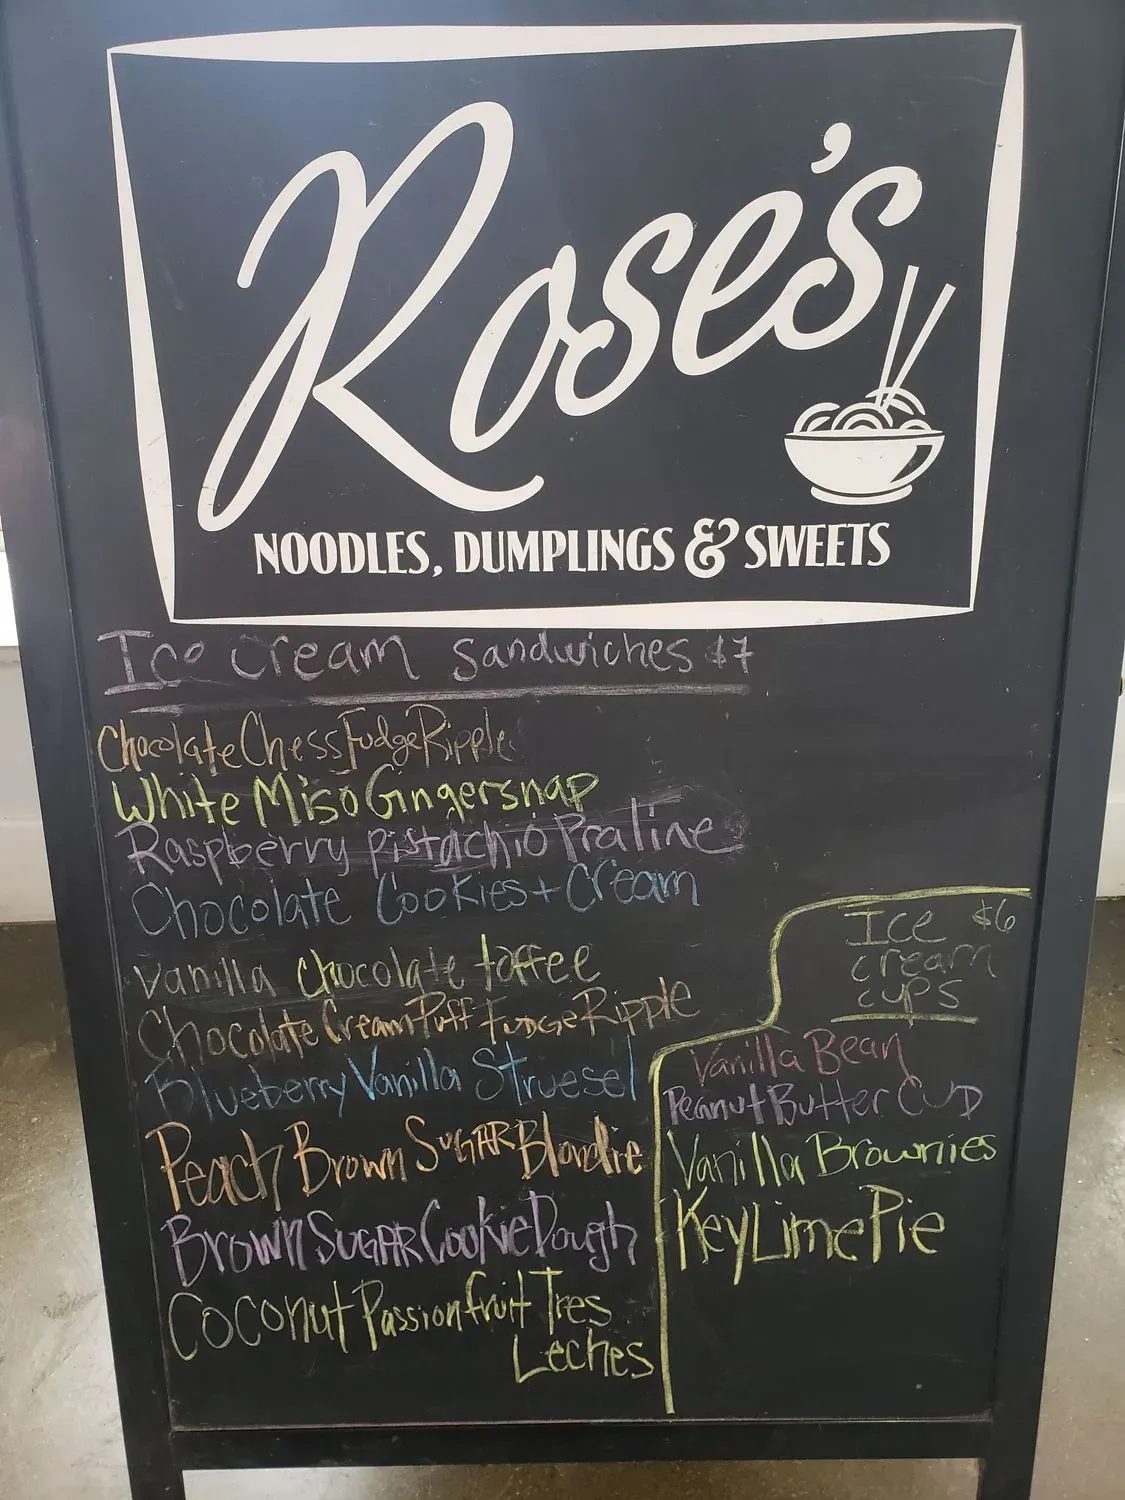 Rose's
NOODLES, DUMPLINGS & SWEETS
Ice cream sandwiches $7
Chocolate Chess Fudge Ripple
White Miso Gingersnap
Raspberry pistachio Praline
Chocolate Cookies + Cream
Vanilla chocolate toffee
Chocolate Cream Puff Fudge Ripple
Blueberry Vanilla Struesel
Peach Brown SUGAR Blondie
Brown SUGAR Cookie Dough
Coconut Passionfruit Tres
Leches
Ice $6
cream
cups
Vanilla Bean
Peanut Butter Cup
Vanilla Brownies
Key Lime Pie